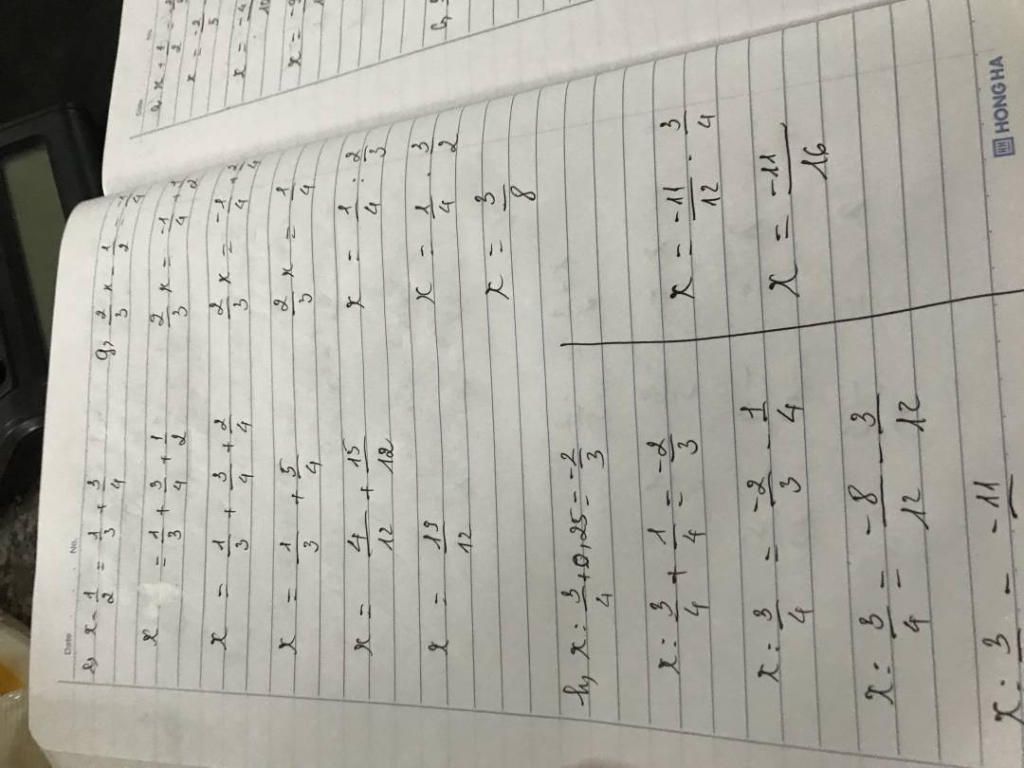 Date
No.
e, x - 1/2 = 1/3 + 3/4
x = 1/3 + 3/4 + 1/2
x = 1/3 + 3/4 + 2/4
x = 1/3 + 5/4
x = 4/12 + 15/12
x = 19/12
g, 2/3 x - 1/2 = -1/4
2/3 x = -1/4 + 1/2
2/3 x = -1/4 + 2/4
2/3 x = 1/4
x = 1/4 : 2/3
x = 1/4 . 3/2
x = 3/8
h, x : 3/4 + 0,25 = -2/3
x : 3/4 + 1/4 = -2/3
x : 3/4 = -2/3 - 1/4
x : 3/4 = -8/12 - 3/12
x : 3 = -11
x = -11/12 . 3/4
x = -11/16
HONG HA